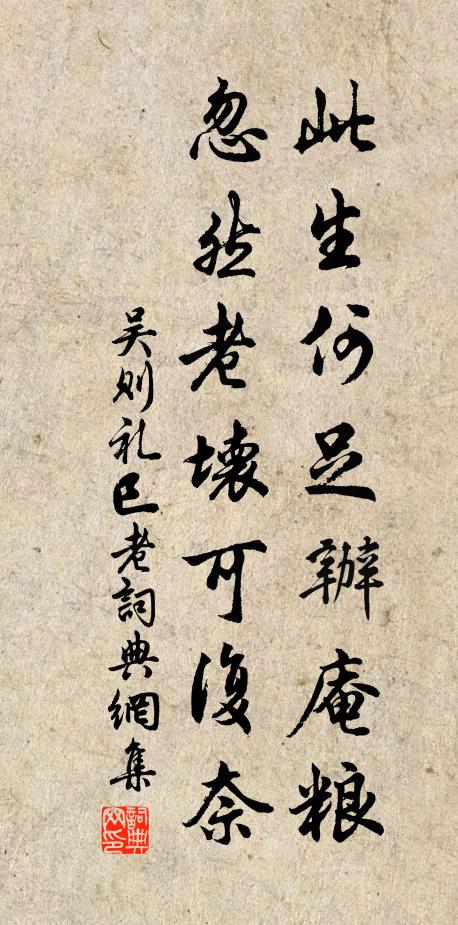 此生何足辦庵粮
忽然老壞可復奈
吴则礼已老詞典網集
詞典網印